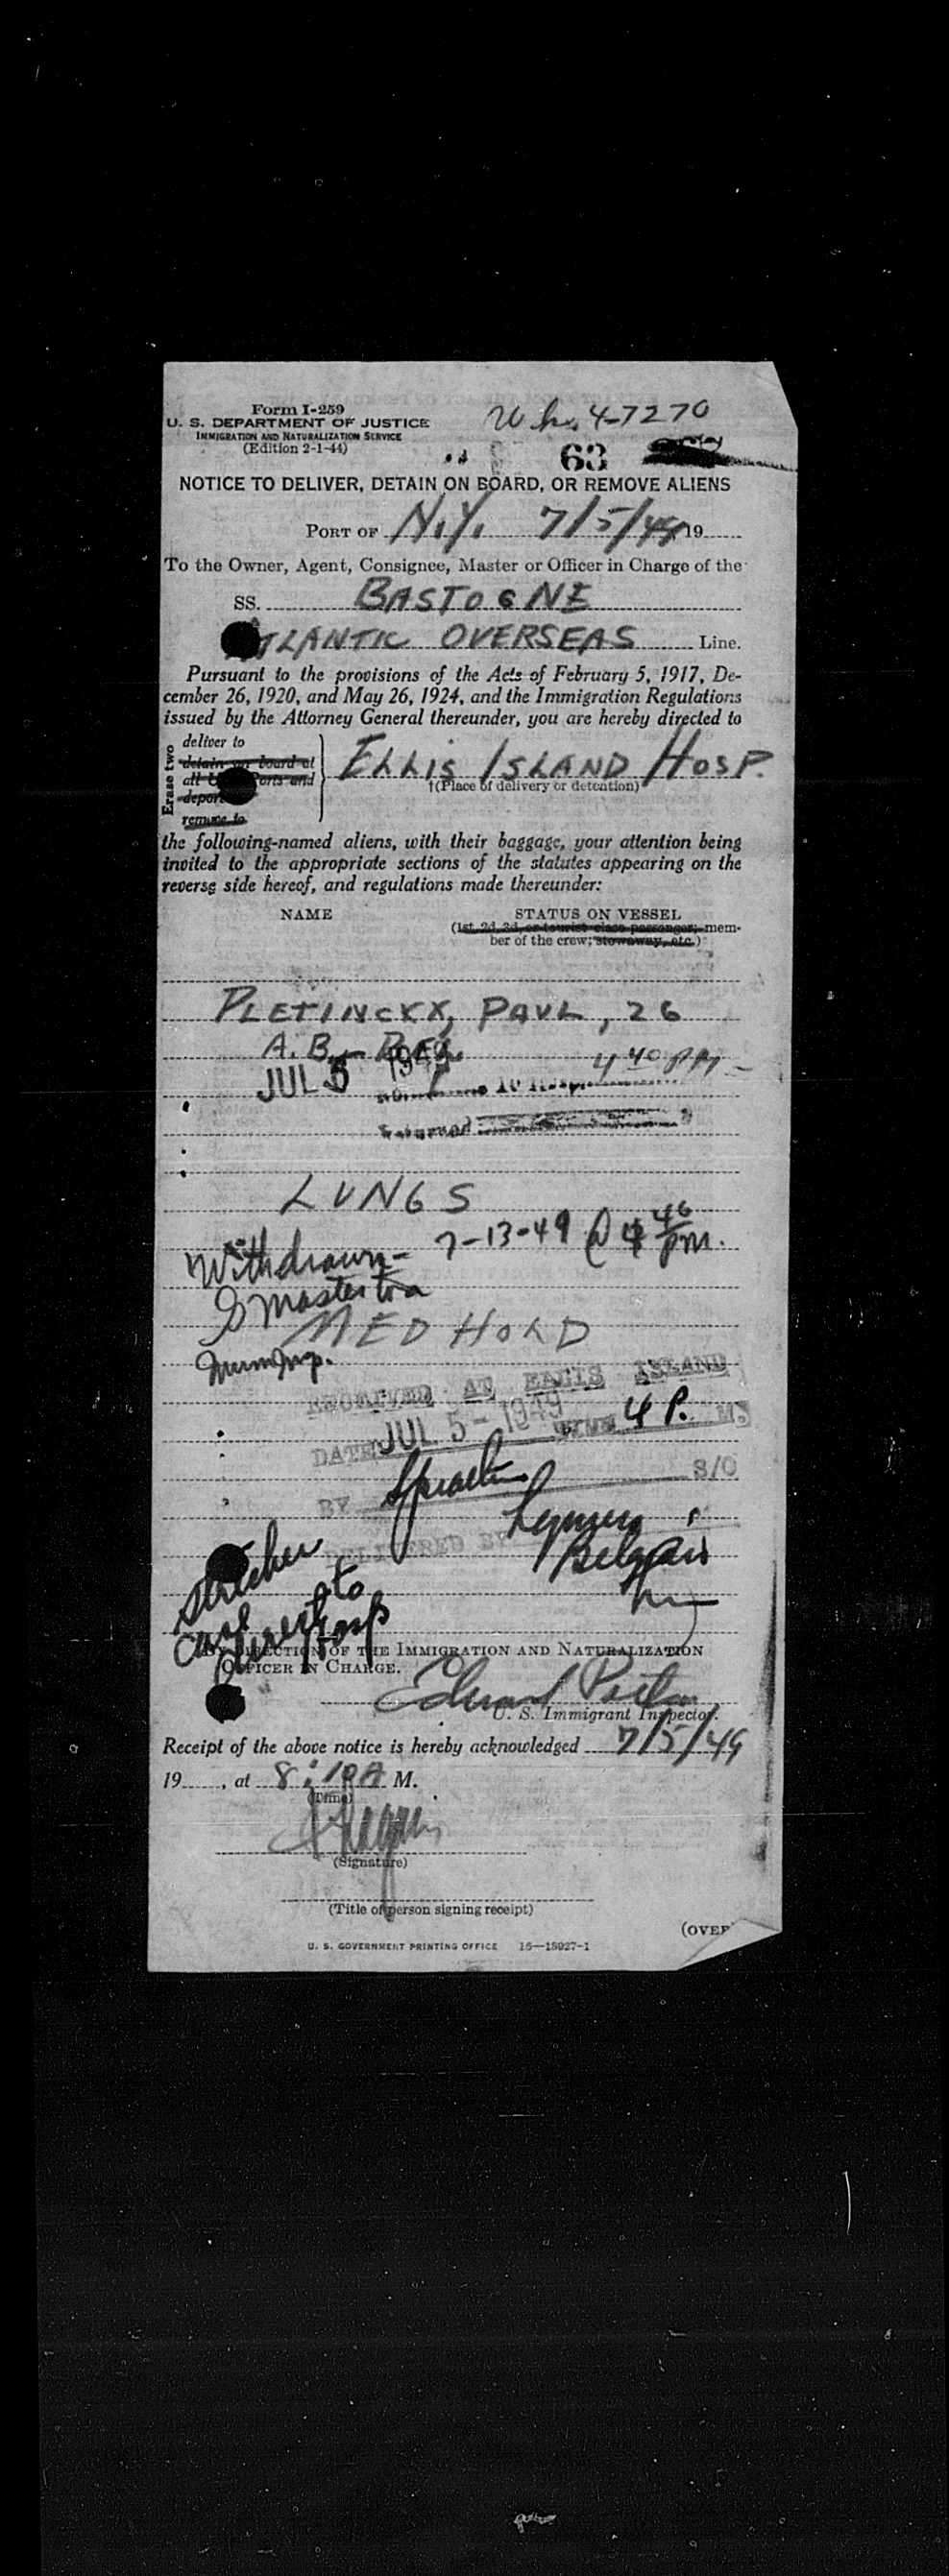 Form I-259
U. S. DEPARTMENT OF JUSTICE
IMMIGRATION AND NATURALIZATION SERVICE
(Edition 2-1-44)
Wh. 4-7270
63
NOTICE TO DELIVER, DETAIN ON BOARD, OR REMOVE ALIENS
PORT OF N.Y. 7/5/49 19
To the Owner, Agent, Consignee, Master or Officer in Charge of the
SS. BASTOGNE
ATLANTIC OVERSEAS Line.
Pursuant to the provisions of the Acts of February 5, 1917, De-
cember 26, 1920, and May 26, 1924, and the Immigration Regulations
issued by the Attorney General thereunder, you are hereby directed to
Erase two
deliver to
detain on board at
all ports and
deport
remove to
ELLIS ISLAND HOSP.
†(Place of delivery or detention)
the following-named aliens, with their baggage, your attention being
invited to the appropriate sections of the statutes appearing on the
reverse side hereof, and regulations made thereunder:
NAME STATUS ON VESSEL
(1st, 2d, 3d, or tourist class passenger; mem-
ber of the crew; stowaway, etc.)
PLETINCKX, PAUL, 26
A.B.
JUL 5 1949 4 40 PM
Returned
LUNGS
Withdrawn - 7-13-49 @ 4 46 pm.
MED HOLD
RECEIVED AT ELLIS ISLAND
DATE JUL 5 - 1949 TIME 4 P. M.
BY S/O
DELIVERED BY
Stretcher
case
direct to
Hosp
BY DIRECTION OF THE IMMIGRATION AND NATURALIZATION
OFFICER IN CHARGE.
U. S. Immigrant Inspector.
Receipt of the above notice is hereby acknowledged 7/5/49
19 , at 8:10 A M.
(Time)
(Signature)
(Title of person signing receipt)
(OVER
U. S. GOVERNMENT PRINTING OFFICE 16—18927-1